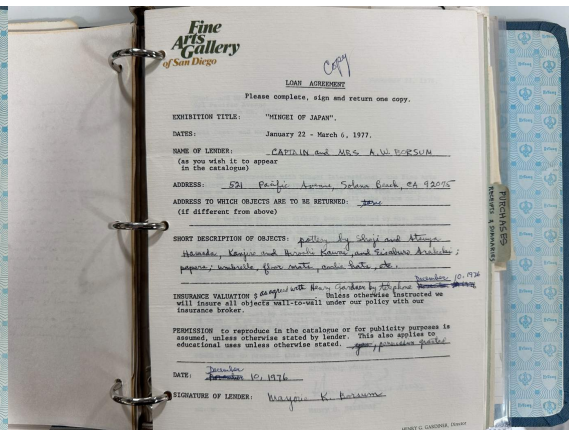 Fine
Arts
Gallery
of San Diego
Copy
LOAN AGREEMENT
Please complete, sign and return one copy.
EXHIBITION TITLE: "MINGEI OF JAPAN".
DATES: January 22 - March 6, 1977.
NAME OF LENDER: CAPTAIN and MRS A.W. BORSUM
(as you wish it to appear
in the catalogue)
ADDRESS: 521 Pacific Avenue, Solana Beach, CA 92075
ADDRESS TO WHICH OBJECTS ARE TO BE RETURNED:
(if different from above)
SHORT DESCRIPTION OF OBJECTS: pottery by Shoji and Atsuya
Hamada, Kanjiro and Hiroshi Kawai, and Eisaburo Arakaki;
papers; umbrella, floor mats, hats, etc.
December 10, 1976
INSURANCE VALUATION as agreed with Henry Gardiner by telephone
Unless otherwise instructed we
will insure all objects wall-to-wall under our policy with our
insurance broker.
PERMISSION to reproduce in the catalogue or for publicity purposes is
assumed, unless otherwise stated by lender. This also applies to
educational uses unless otherwise stated. permission granted
December
DATE: 10, 1976
SIGNATURE OF LENDER: Marjorie K. Borsum
HENRY G. GARDINER, Director
PURCHASES
RECEIPTS &